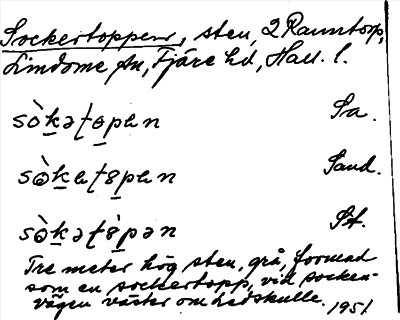 Sockertoppen, sten, 2 Ranntorp,
Lindome sn, Fjäre hd, Hall. l.
sò̱kəʈɵpən Sa.
sɷ̀kəʈɵpən Sand.
sɷ̀kəʈɵ̀pən St.
Tre meter hög sten, grå, formad
som en sockertopp, vid socken-
vägen väster om Ledskulle. 1951